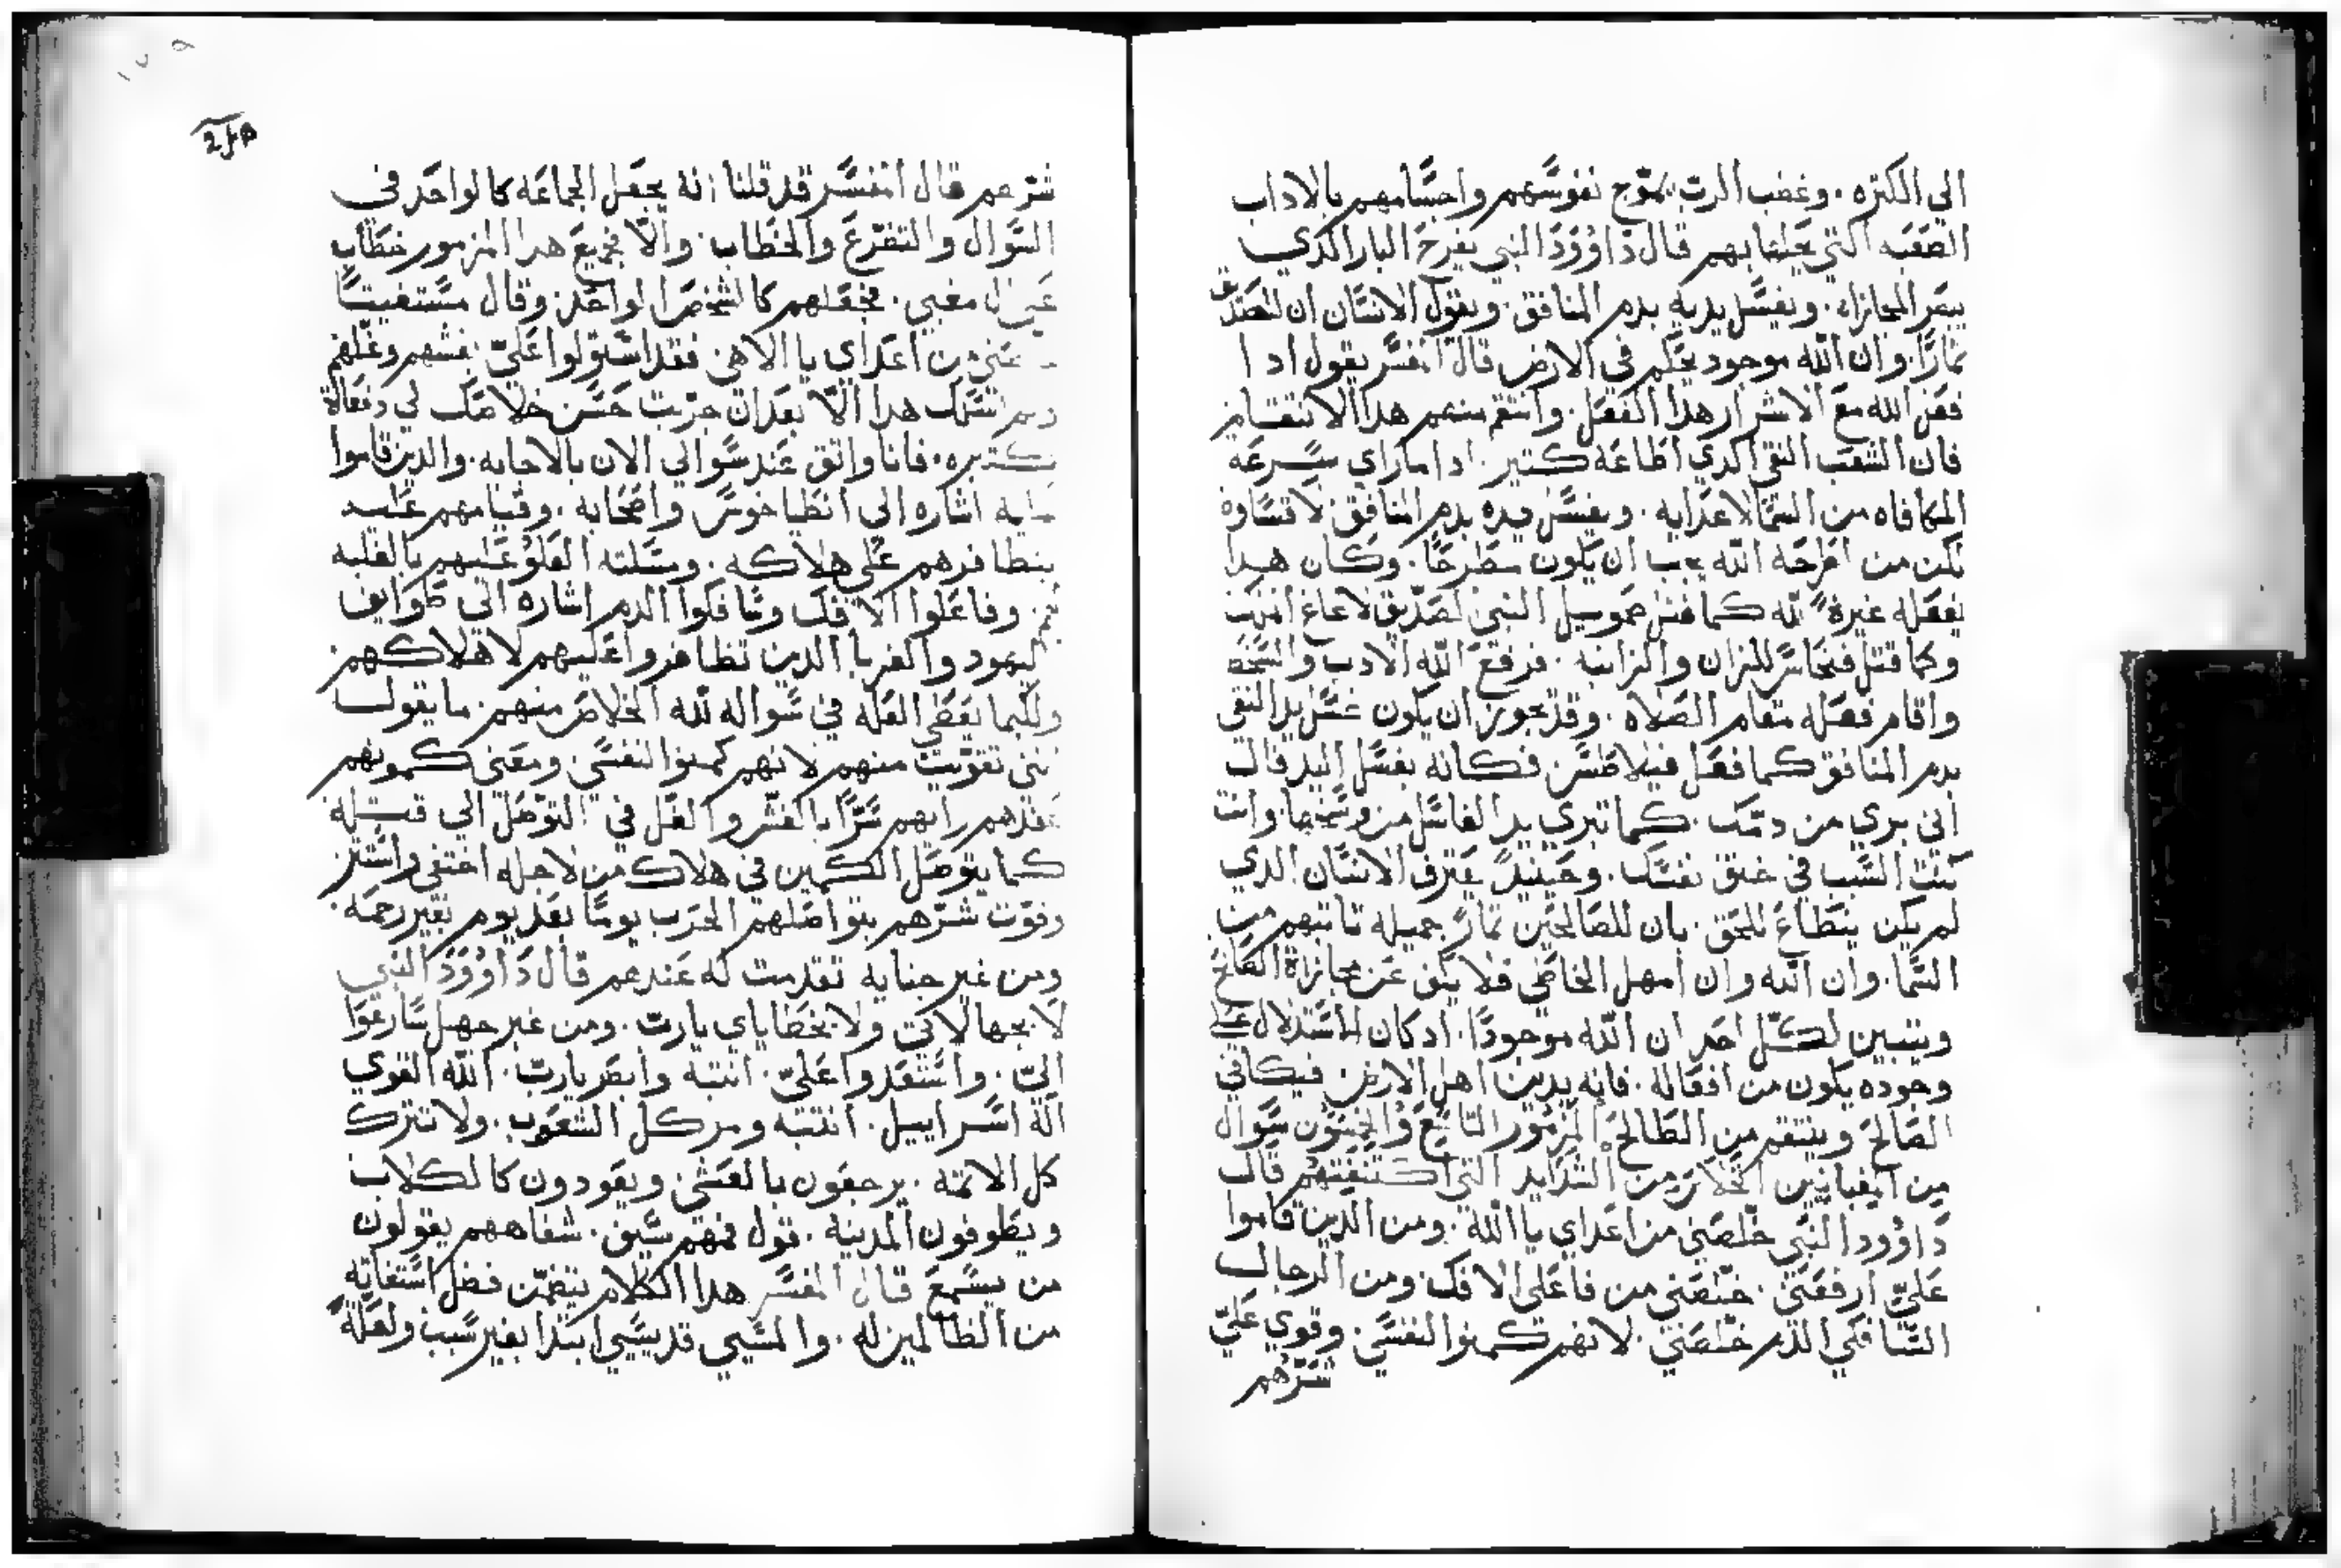 الي الكتره . وغضب الرب يموج نفوسهم واجسامهم بالاداب
الصعبه التي يحلها بهم قال داوود النبي يفرح البار الذي
يبصر المجازاه . ويغسل يديه بدم المنافق . ويقول الانسان ان للصديق
تمارًا . وان الله موجود يحكم في الارض قال المفسر يقول ادا
فعل الله مع الاشرار هدا الفعل . وانتقم منهم هدا الانتقام
فان الشعب التقي الدي اطاعه كتير . ادا ما راي سرعه
المكافاه من السما لاعدايه . ويغسل يده بدم المنافق لا قساوه
لكن من اطرحه الله يجب ان يكون مطرحًا . وكان هدا
يفعله غيرة لله كما قتل صموييل النبي الصديق لاعاغ
وكما قتل فنحاس للزان والزانيه . فرفع الله الادب والسخط
واقام فعله مقام الصلاه . وقد يجوز ان يكون غسل يد التقي
بدم المنافق كما فعل فيلاطس . فكانه يغسل اليد قال
اني بري من دمك . كما تبري يد الغاسل من وسخها وانت
كنت السبب في خنق نفسك . وحينيد يعترف الانسان الدي
لم يكن ينطاع للحق . بان للصالحين تمارًا جميله تاتيهم من
السما . وان الله وان امهل الخاطي فلا يكف عن مجازاة الصالح
ويتبين لكل احد ان الله موجودًا . اد كان الاستدلال علي
وجوده يكون من افعاله . فانه يدين اهل الارض . فيكافي
الصالح وينتقم من الطالح المزمور التاسع والخمسون سوال
من المغبانيين الخلاص من الشدايد التي اكتنفتهم قال
داوود النبي خلصني من اعداي يا الله . ومن الدين قاموا
علي ارفعني . خلصني من فاعلي الافك . ومن الرجال
السافكي الدم خلصني . لانهم كمنوا لنفسي . وقوي علي
شرهم
شرهم قال المفسر قد قلنا انه يجعل الجماعه كالواحد في
السوال والتفرع والخطاب . والا فجميع هدا المزمور خطاب
مغبي . فجعلهم كالشخص الواحد . وقال مستغيثًا
من اعداي يا الاهي فقد استولوا علي بغشهم وغلهم
ولم نسلك هدا الا بعد ان جربت حسن خلاصك لي دفعات
كتيره . فانا واثق عند سوالي الان بالاجابه . والدين قاموا
عليه اشاره الي انطياخوس واصحابه . وقيامهم عليه
بتظافرهم علي هلاكه . ومسلته العلو عليهم بالغلبه
لهم وفاعلوا الافك وسافكوا الدم اشاره الي طوايف
اليهود والغربا الدين تظافروا عليهم لاهلاكهم .
ولكيما يعطي العله في سواله لله الخلاص منهم . ما يقول
تقويت منهم لانهم كمنوا لنفسي . ومعني كمونهم
عقدهم رايهم سرًا بالغش والغل في التوصل الي قتله
كما يتوصل الكمين في هلاك من لاجله اختفي واستتر
وقوت شرهم بتواصلهم الحرب يومًا بعد يوم بغير رحمه .
ومن غير جنايه تقدمت له عندهم قال داوود النبي
لا بجهالاتي ولا بخطاياي يارب . ومن غير جهل سارعوا
الي . واستعدوا علي . انتبه وابصر يارب . الله القوي
اله اسراييل . انتبه ومر كل الشعوب . ولا تترك
كل الاتمه . يرجعون بالعشي ويعودون كالكلاب
ويطوفون المدينه . قول فمهم سيف . شفاههم يقولون
من يسمع قال المفسر هدا الكلام يتضمن فضل استغاته
من الظالمين له . والمسي قد يسي ابتدا بغير سبب ولعله